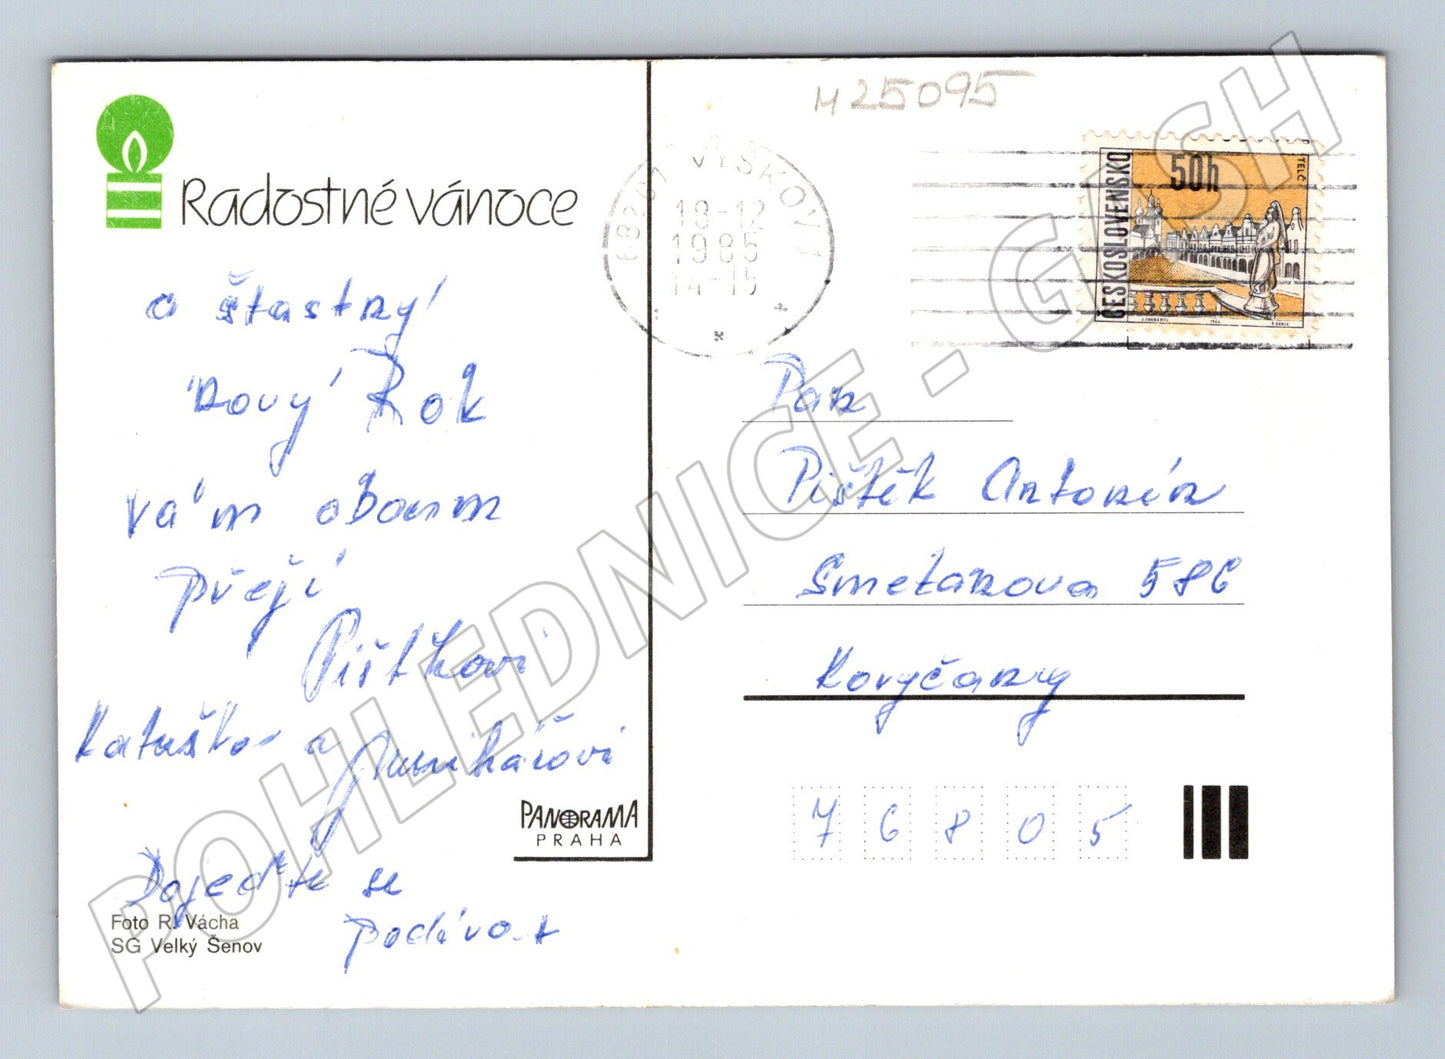 Radostné vánoce
a šťastný
nový Rok
vám oboum
přejí
Pištkovi
Katuška a
Dojeďte se
podívat
PANORAMA
PRAHA
Foto R. Vácha
SG Velký Šenov
M25095
682 01 VYŠKOV 1
18-12
1985
14-15
ČESKOSLOVENSKO
50h
TELČ
Pan
Pištěk Antonín
Smetanova 586
Koryčany
76805
POHLEDNICE - GASH